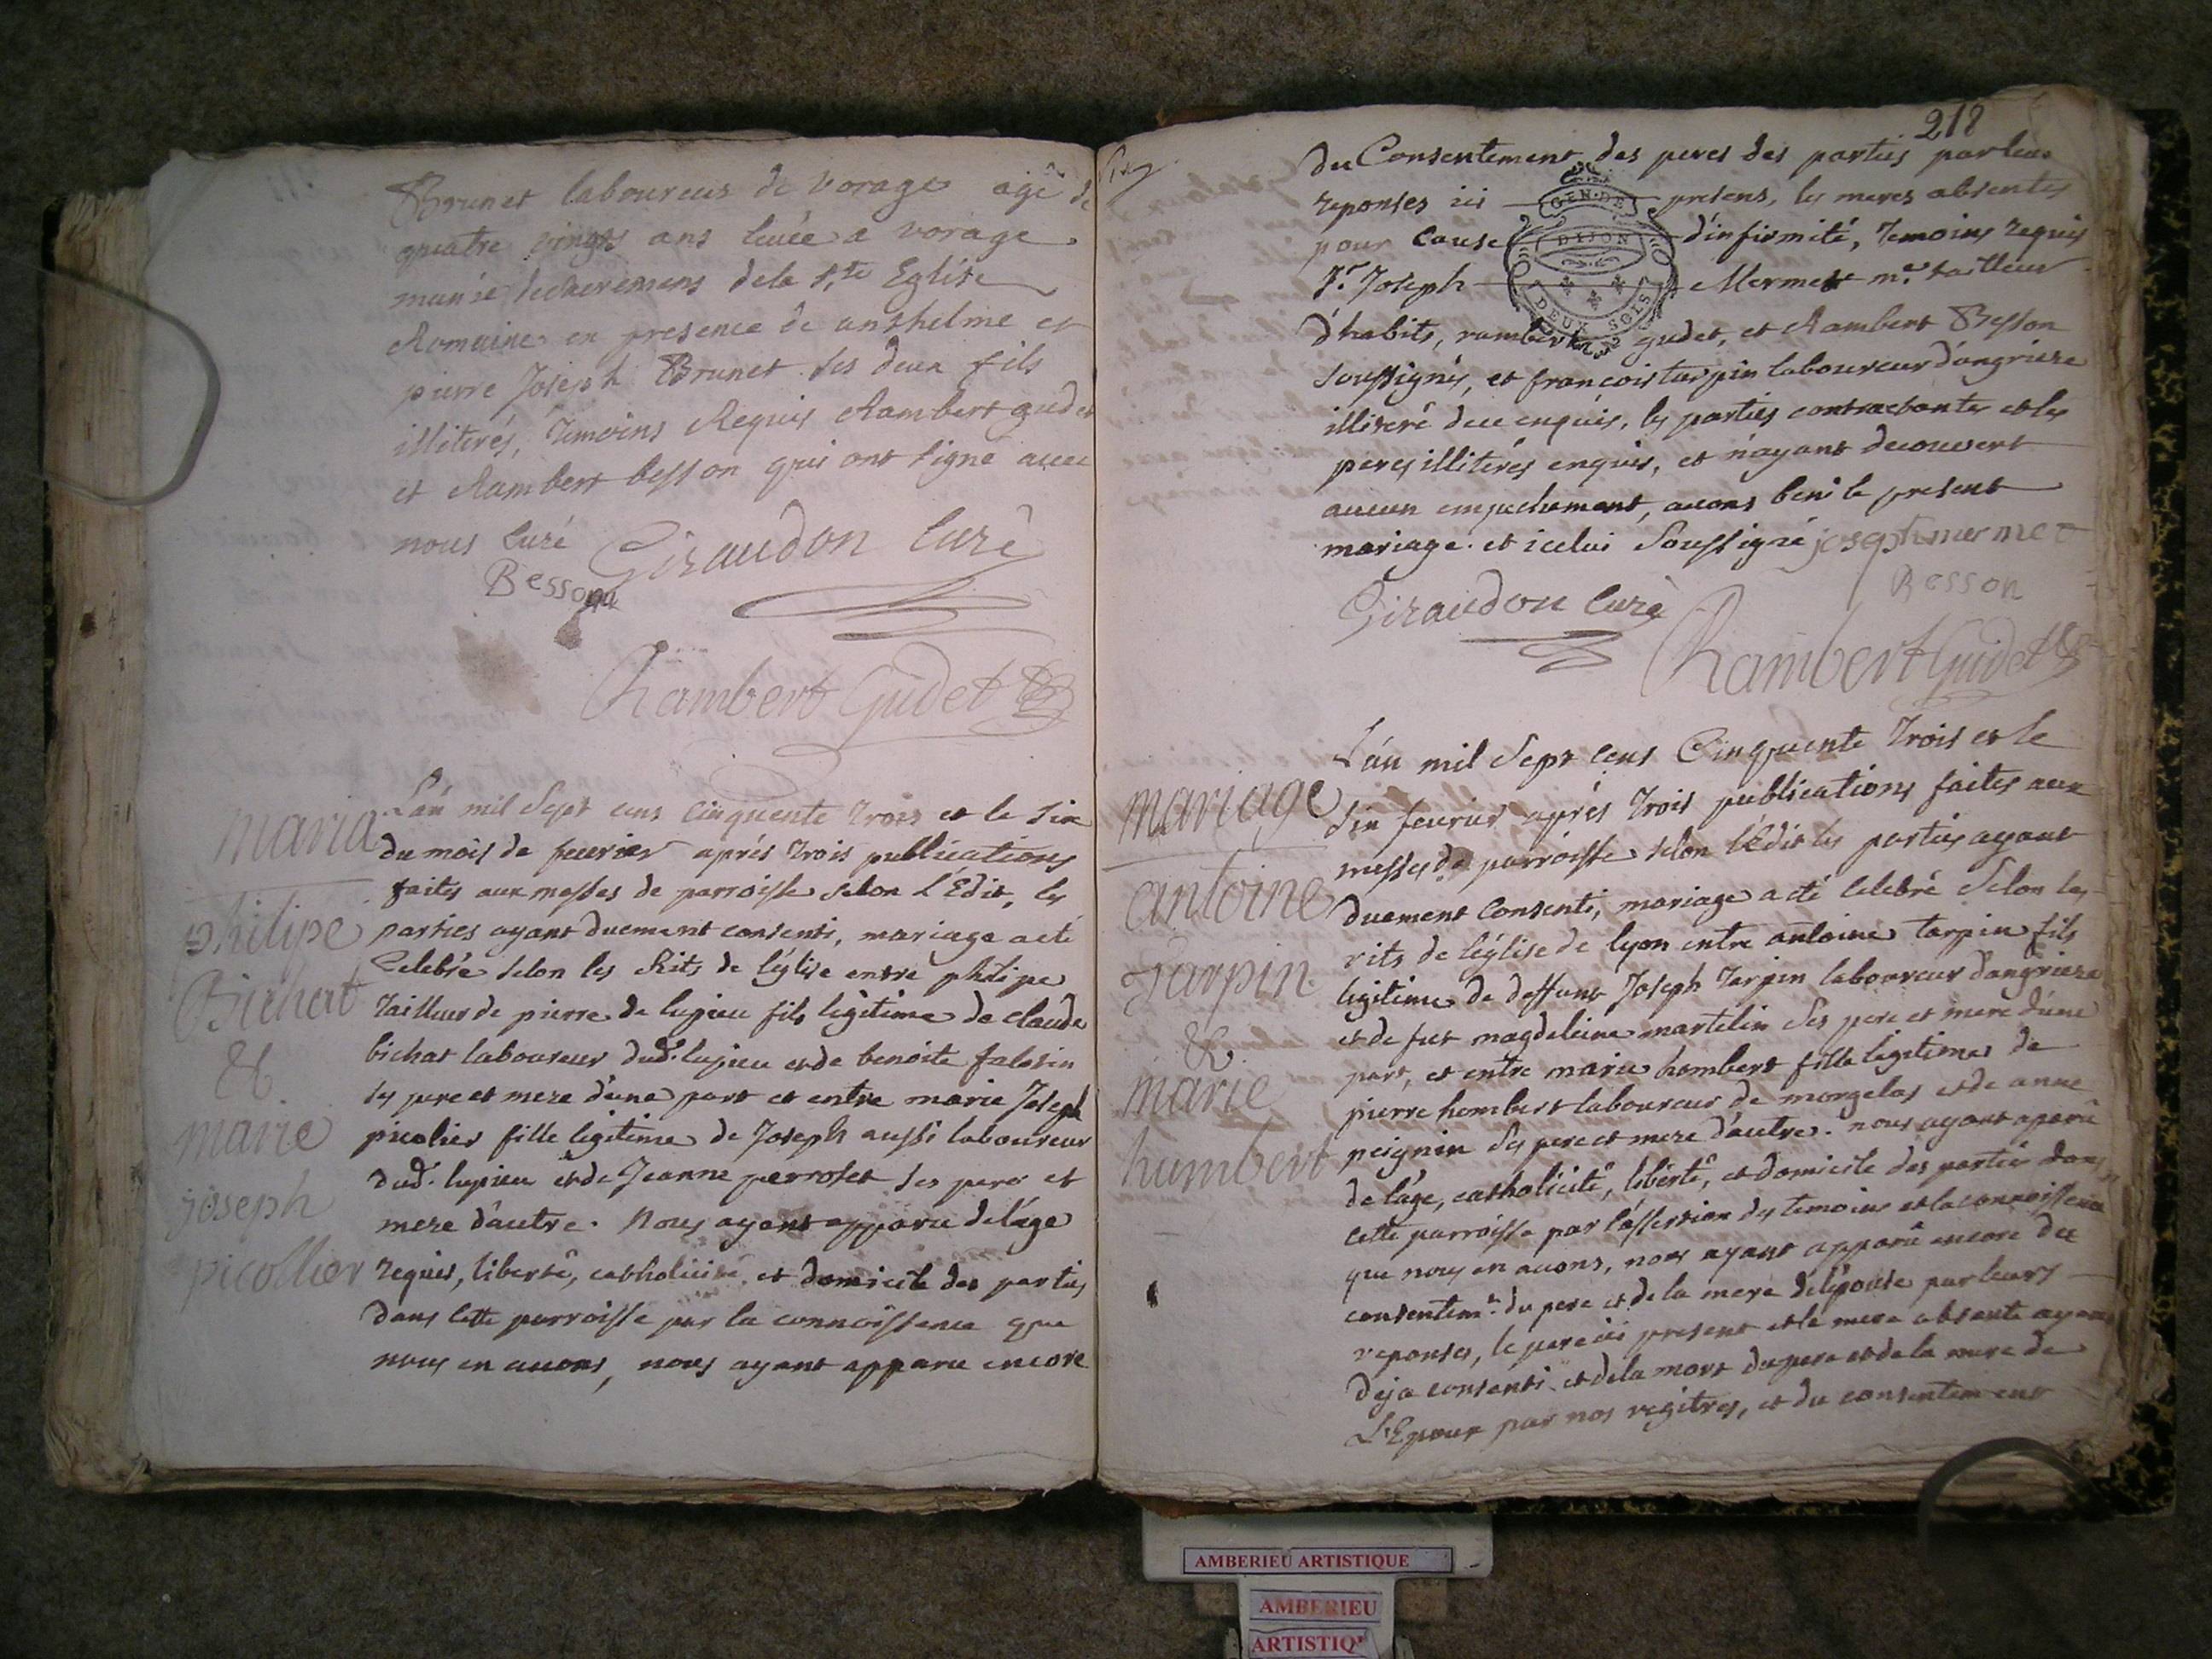 Brunet laboureur de Vorage agé de
quatre vingts ans levée a vorage
munie des sacremens de la Ste Eglise
Romaine en presence de anthelme et
pierre Joseph Brunet ses deux fils
illiterés, temoins Requis Rambert gudet
et Rambert besson qui ont signé avec
nous Curé Giraudon Curé
Besson
Rambert Gudet
maria
philipe
Bichat
&
marie
joseph
picollier
L'an mil Sept cens Cinquente trois et le six
du mois de feuvrier aprés trois publications
faites aux messes de parroisse selon L'Edit, les
parties ayant duement consenti, mariage a eté
Celebré selon les Rits de l'église entre philipe
tailleur de pierre de lupieu fils légitime de claude
bichat laboureur dud. lupieu et de benoite falosin
ses pere et mere d'une part et entre marie Joseph
picolier fille légitime de Joseph aussi laboureur
dud. lupieu et de Jeanne perrotet ses pere et
mere d'autre. Nous ayant apparu de l'age
requis, liberté, catholicité, et domicile des parties
dans cette parroisse par la connoissence que
nous en avons, nous ayant apparu encore
218
du Consentement des peres des parties par leur
reponses ici presens, les meres absentes
pour Cause d'infirmité, temoins requis
Sr. Joseph Mermet me. tailleur
d'habits, rambert gudet, et Rambert Besson
soussignés, et francois tarpin laboureur d'angrieze
illiteré de ce enquis, les parties contractantes et les
peres illiterés enquis, et n'ayant decouvert
aucun empechement, avons beni le present
mariage. et icelui Soussigné joseph mermet
Giraudon Curé
Besson
Rambert Gudet
GEN. DE
DIJON
DEUX SOLS
mariage
antoine
Tarpin
&
marie
humbert
L'an mil Sept cens Cinquente trois et le
six feuvrier aprés trois publications faites aux
messes de parroisse selon l'Edit les parties ayant
duement Consenti, mariage a eté Celebré Selon les
rits de l'église de lyon entre antoine tarpin fils
legitime de deffunt Joseph tarpin laboureur d'angrieze
et de fut magdeleine martelin ses pere et mere d'une
part, et entre marie hombert fille legitime de
pierre hombert laboureur de mongelas et de anne
peignin ses pere et mere d'autre. nous ayant aparu
de l'age, catholicité, liberté, et domicile des parties dans
cette parroisse par l'assertion des temoins et la connoissence
que nous en avons, nous ayant apparû encore du
consentemt. du pere et de la mere de l'épouse par leurs
reponses, le pere ici present et la mere absente ayant
deja consenti et de la mort du pere et de la mere de
L'Epoux par nos regitres, et du consentement
AMBERIEU ARTISTIQUE
AMBERIEU
ARTISTIQ